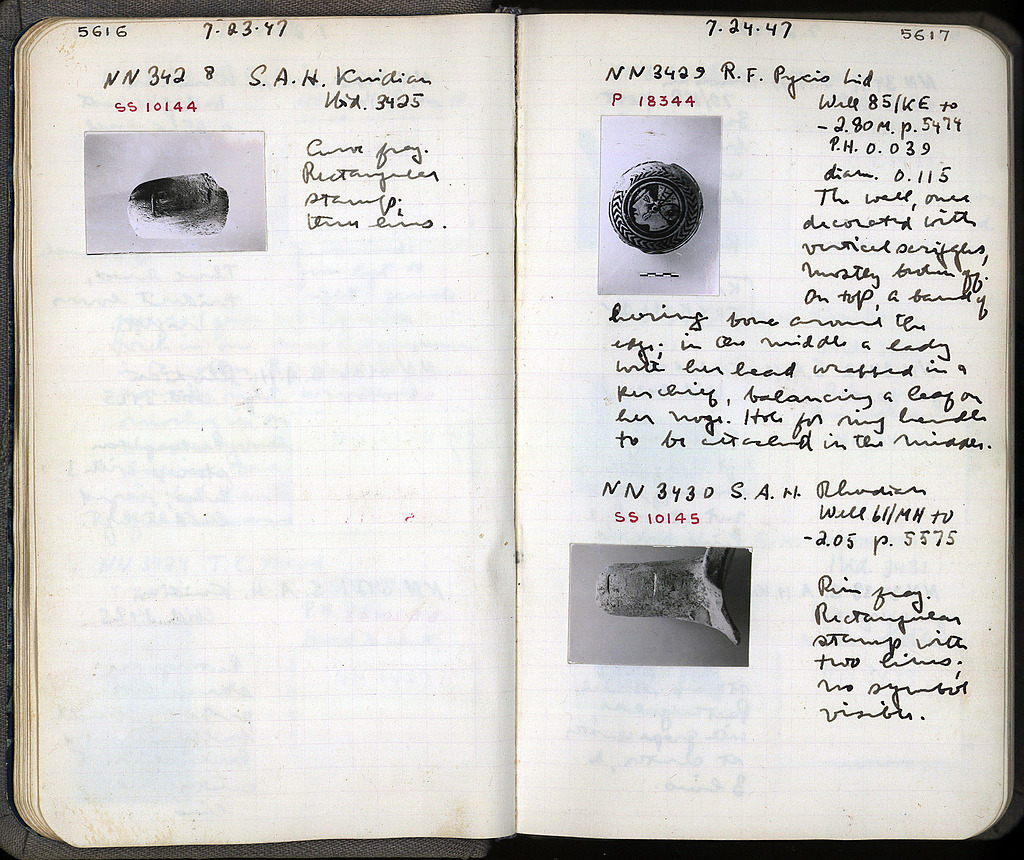 5616 7-23-47
NN 3428 S.A.H. Knidian
SS 10144 Ibid. 3425
Curve frag.
Rectangular
stamp;
three lines.
7.24.47 5617
NN 3429 R.F. Pyxis Lid
P 18344 Well 85/KE to
-2.80 M. p. 5474
P.H. 0.039
diam. 0.115
The wall, once
decorated with
vertical squiggles,
mostly broken off.
On top, a band of
herring bone around the
edge; in the middle a lady
with her head wrapped in a
kerchief, balancing a leaf on
her nose. Hole for ring handle
to be attached in the middle.
NN 3430 S.A.H. Rhodian
SS 10145 Well 61/MH to
-2.05 p. 5575
Rim frag.
Rectangular
stamp with
two lines;
no symbol
visible.